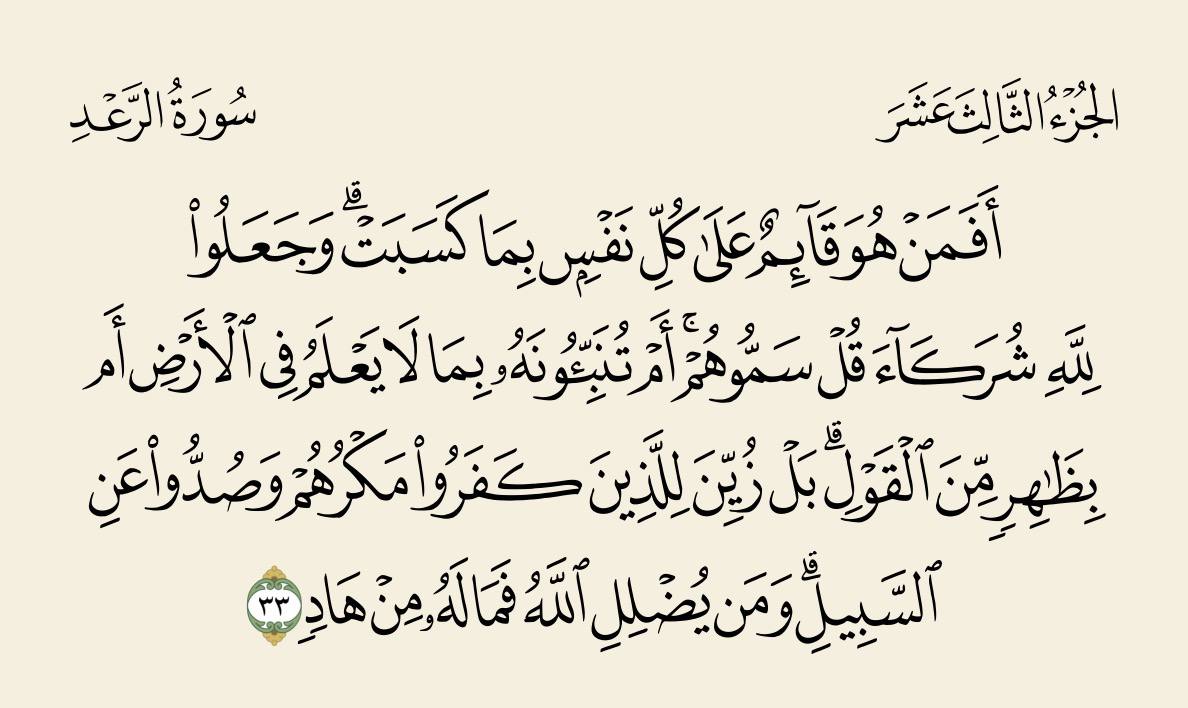 الجُزْءُ الثَّالِثَ عَشَرَ
سُورَةُ الرَّعْدِ
أَفَمَنْ هُوَ قَآئِمٌ عَلَىٰ كُلِّ نَفْسٍۭ بِمَا كَسَبَتْ ۗ وَجَعَلُوا۟
لِلَّهِ شُرَكَآءَ قُلْ سَمُّوهُمْ ۚ أَمْ تُنَبِّـُٔونَهُۥ بِمَا لَا يَعْلَمُ فِى ٱلْأَرْضِ أَم
بِظَـٰهِرٍ مِّنَ ٱلْقَوْلِ ۗ بَلْ زُيِّنَ لِلَّذِينَ كَفَرُوا۟ مَكْرُهُمْ وَصُدُّوا۟ عَنِ
ٱلسَّبِيلِ ۗ وَمَن يُضْلِلِ ٱللَّهُ فَمَا لَهُۥ مِنْ هَادٍ ٣٣